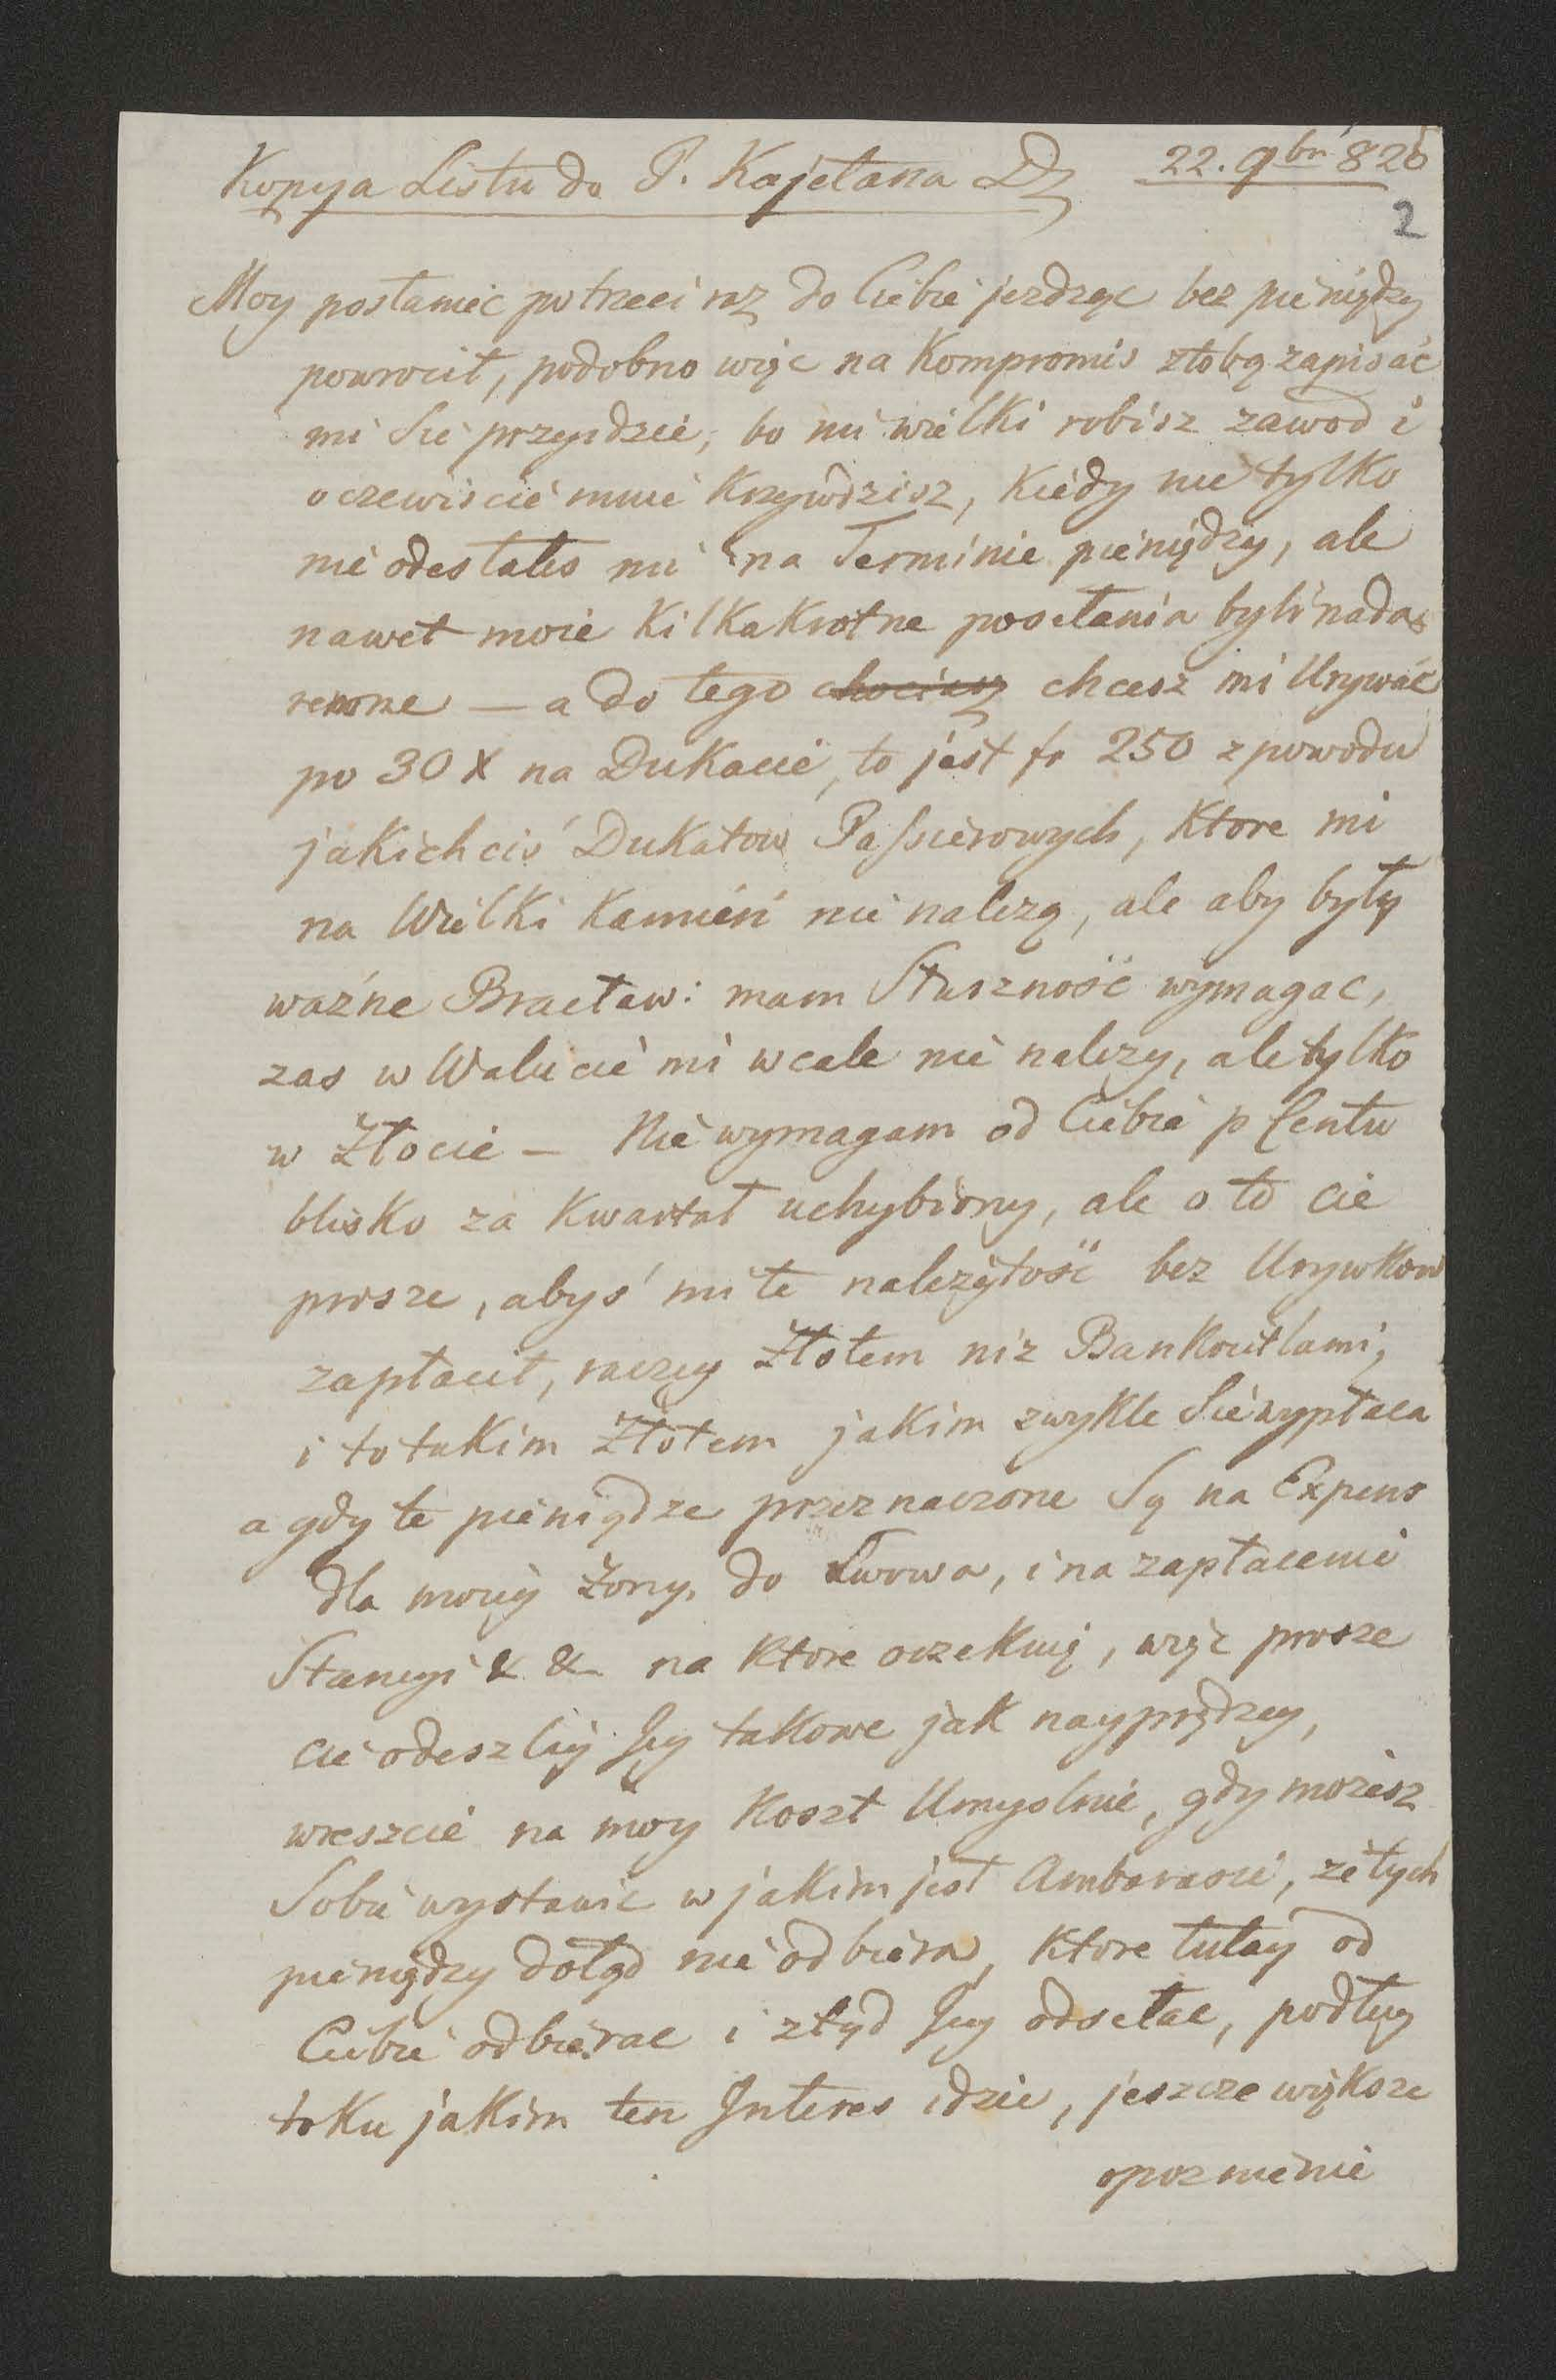 Kopya Listu do P. Kajetana D 22. 9br 826
2
Moy posłaniec potrzeci raz do Ciebie jezdząc bez pieniędzy
powrocił, podobno więc na Kompromis ztobą zapisać
mi Sie przyidzie, bo mi wielki robisz zawod i
oczewiscie mnie Krzywdzisz, Kiedy nie tylko
nie odesłałes mi na Terminie pieniędzy, ale
nawet moie Kilkakrotne poselania byli nada-
remne — a do tego chociasz chcesz mi Urywać
po 30 X na Dukacie, to jest fr 250 z powodu
jakichciś Dukatow Passierowych, Ktore mi
na Wielki Kamień nie nalezą, ale aby były
ważne Bracław: mam Słuszność wymagac,
zas w Walucie mi wcale nie nalezy, ale tylko
w Złocie — Nie wymagam od Ciebie p Centu
blisko za Kwartał uchybiony, ale o to cie
prosze, abyś mi te nalezytość bez Urywkow
zapłacił, raczey Złotem niz Bankocetlami,
i to takim Złotem jakim zwykle Sie wypłaca
a gdy te pieniądze przeznaczone Są na Expens
dla moiey Żony, do Lwowa, i na zapłacenie
Stancyi & & na Ktore oczekuię, więc prosze
cie odeszliy Jey takowe jak nayprędzey,
wreszcie na moy Koszt Umyslnie, gdy mozesz
Sobie wystawic w jakim jest Ambarasie, ze tych
pieniędzy dotąd nie odbiera, Ktore tutay od
Ciebie odbierac i ztąd Jey odselac, podług
toku jakim ten Interes idzie, jeszcze większe
opoznienie